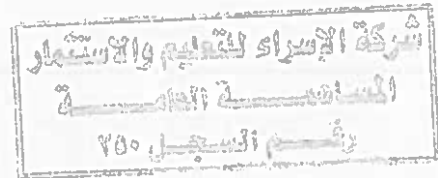 شركة الإسراء للتعليم والاستثمار
المساهمة الخاصة
رقم السجل ٧٥٠